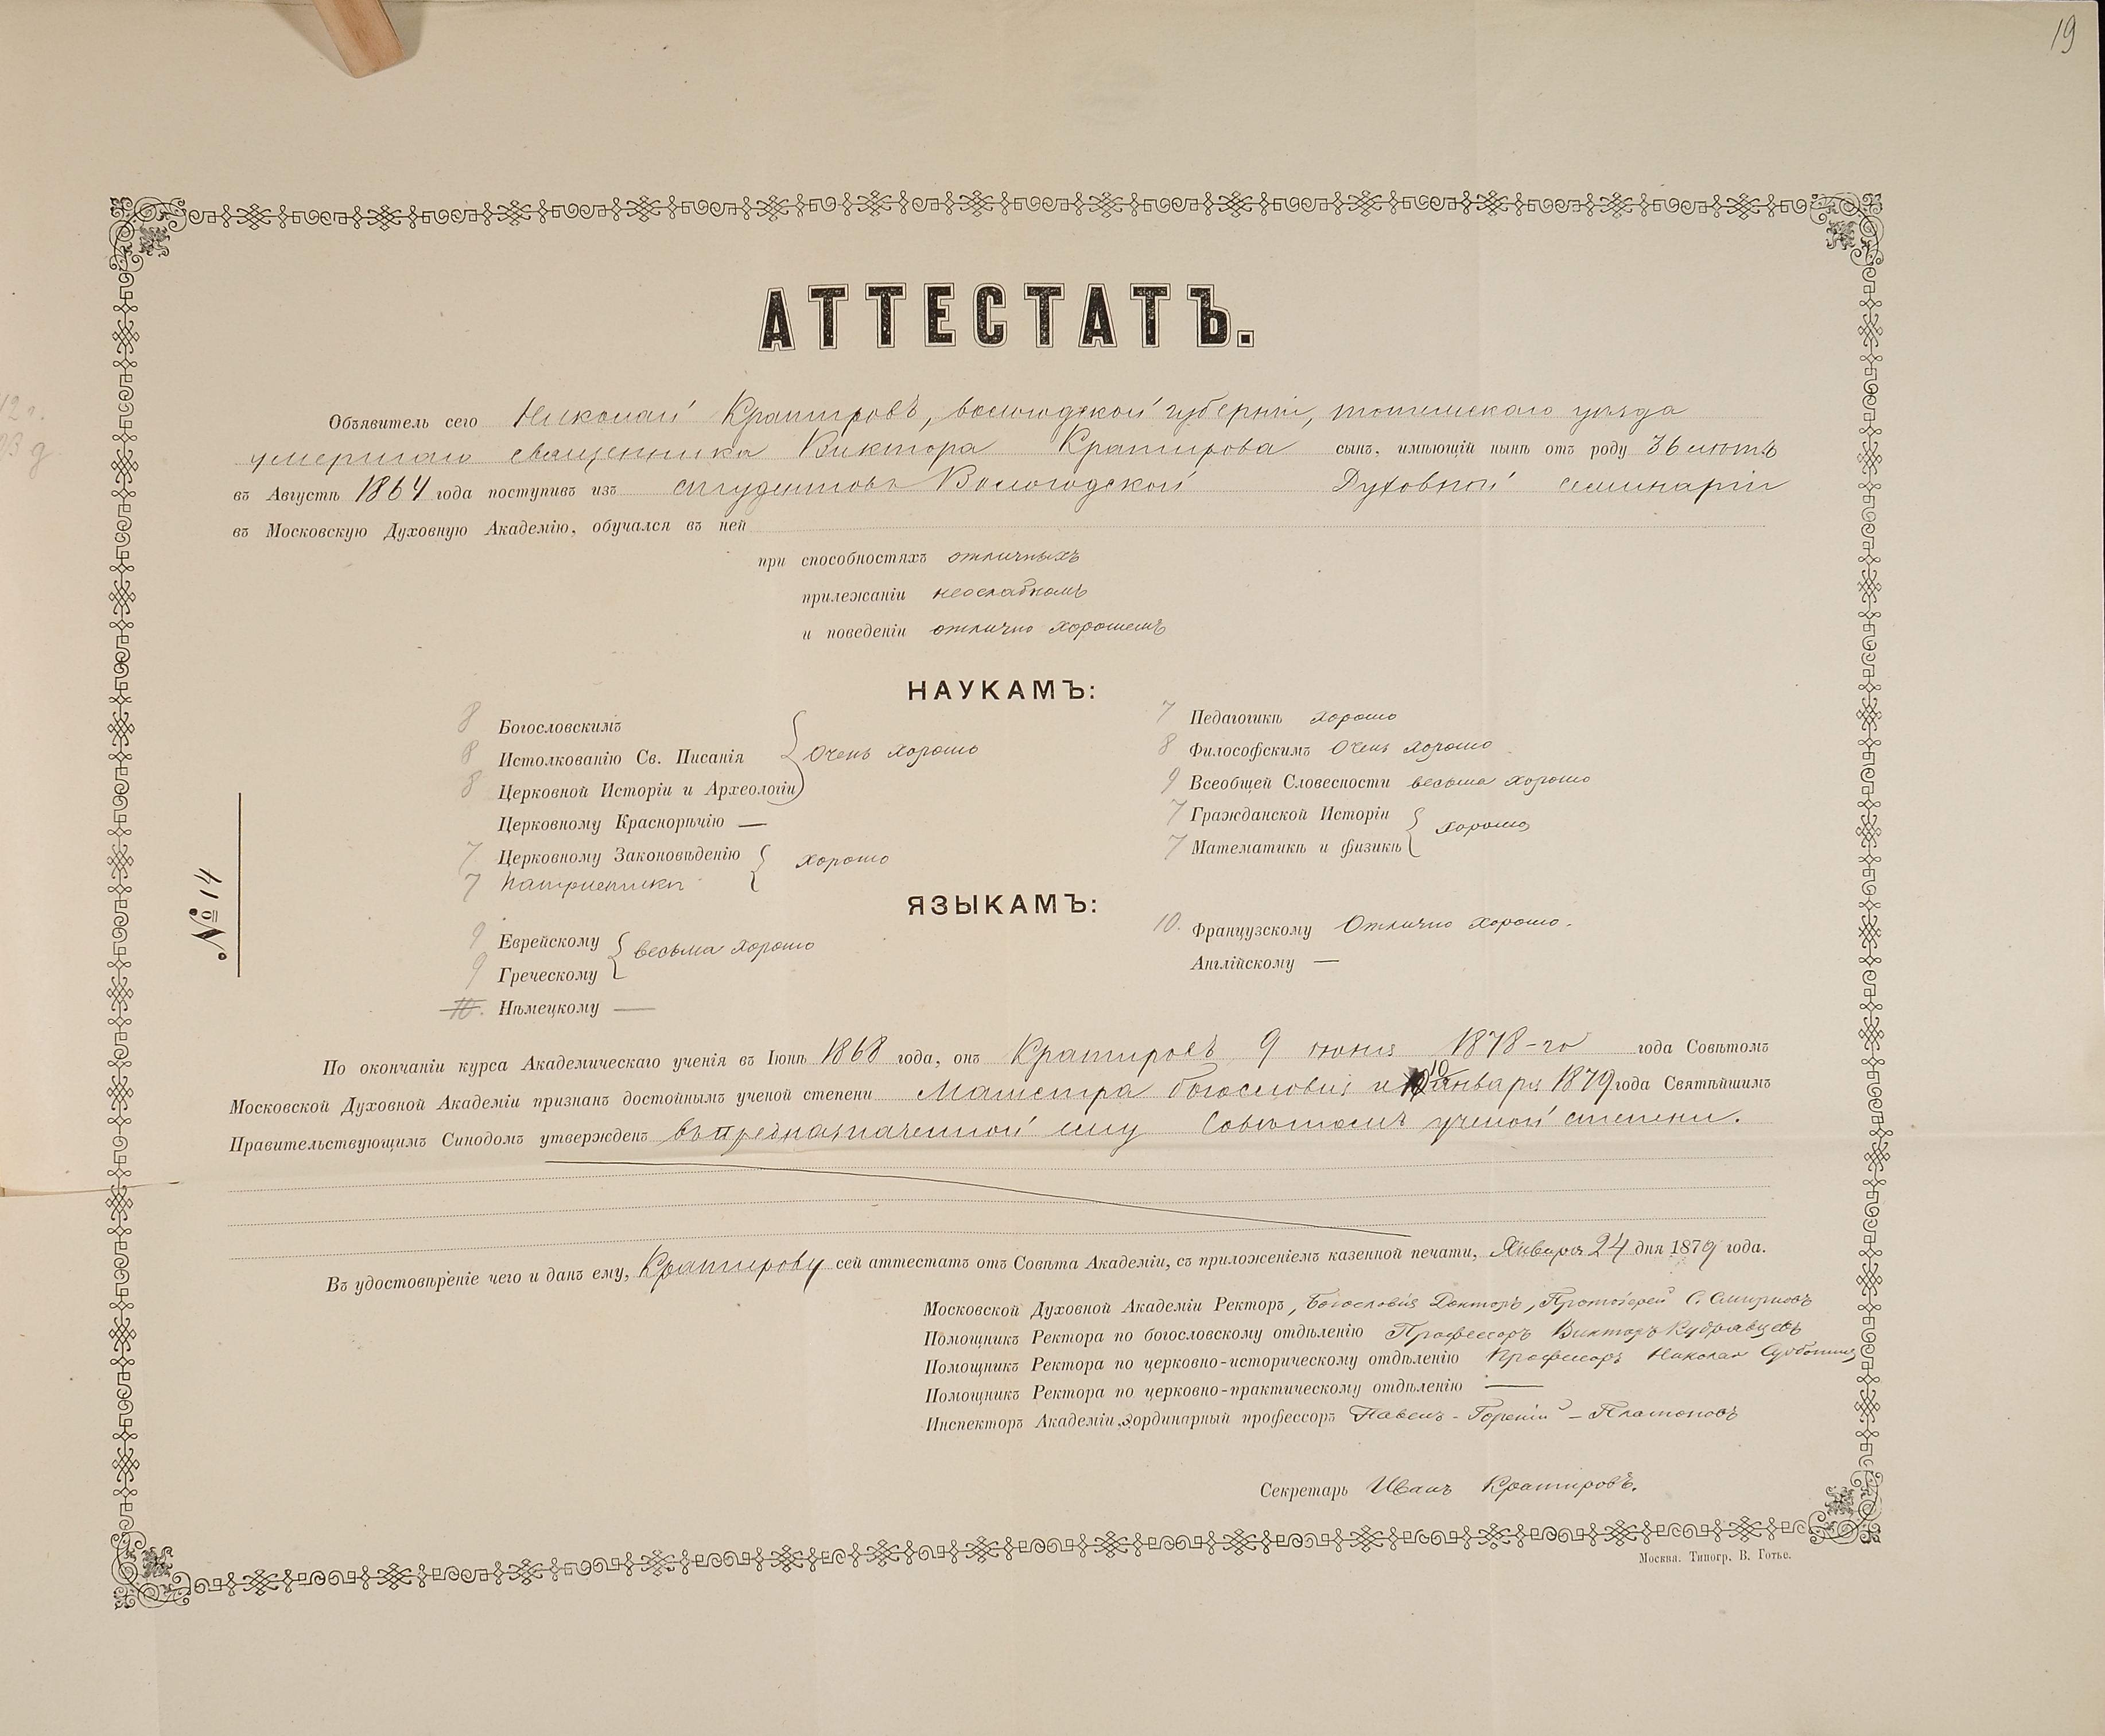 19
АТТЕСТАТЪ.
Объявитель сего Николай Кратировъ, вологодской губерніи, тотемскаго уѣзда
умершаго священника Виктора Кратирова сынъ, имѣющій нынѣ отъ роду 36 лѣтъ
въ Августѣ 1864 года поступивъ изъ студентовъ Вологодской Духовной семинаріи
въ Московскую Духовную Академію, обучался въ ней
при способностяхъ отличныхъ
прилежаніи неослабномъ
и поведеніи отлично хорошемъ
НАУКАМЪ:
8 Богословскимъ
8 Истолкованію Св. Писанія очень хорошо
8 Церковной Исторіи и Археологіи
Церковному Краснорѣчію —
7 Церковному Законовѣдѣнію хорошо
7 Патристикѣ
7 Педагогикѣ хорошо
8 Философскимъ очень хорошо
9 Всеобщей Словесности весьма хорошо
7 Гражданской Исторіи хорошо
7 Математикѣ и физикѣ
№ 14
ЯЗЫКАМЪ:
9 Еврейскому весьма хорошо
9 Греческому
10. Нѣмецкому —
10. Французскому Отлично хорошо.
Англійскому —
По окончаніи курса Академическаго ученія въ Іюнѣ 1868 года, онъ Кратировъ 9 іюня 1878-го года Совѣтомъ
Московской Духовной Академіи признанъ достойнымъ ученой степени Магистра богословія и 10 января 1879 года Святѣйшимъ
Правительствующимъ Синодомъ утвержденъ въ предназначенной ему Совѣтомъ ученой степени.
Въ удостовѣреніе чего и данъ ему, Кратирову сей аттестатъ отъ Совѣта Академіи, съ приложеніемъ казенной печати, Января 24 дня 1879 года.
Московской Духовной Академіи Ректоръ, Богословія Докторъ, Протоіерей С. Смирновъ
Помощникъ Ректора по богословскому отдѣленію Профессоръ Викторъ Кудрявцевъ
Помощникъ Ректора по церковно-историческому отдѣленію Профессоръ Николай Субботинъ
Помощникъ Ректора по церковно-практическому отдѣленію —
Инспекторъ Академіи, э.ординарный профессоръ Павелъ - Горскій - Платоновъ
Секретарь Иванъ Кратировъ.
Москва. Типогр. В. Готье.